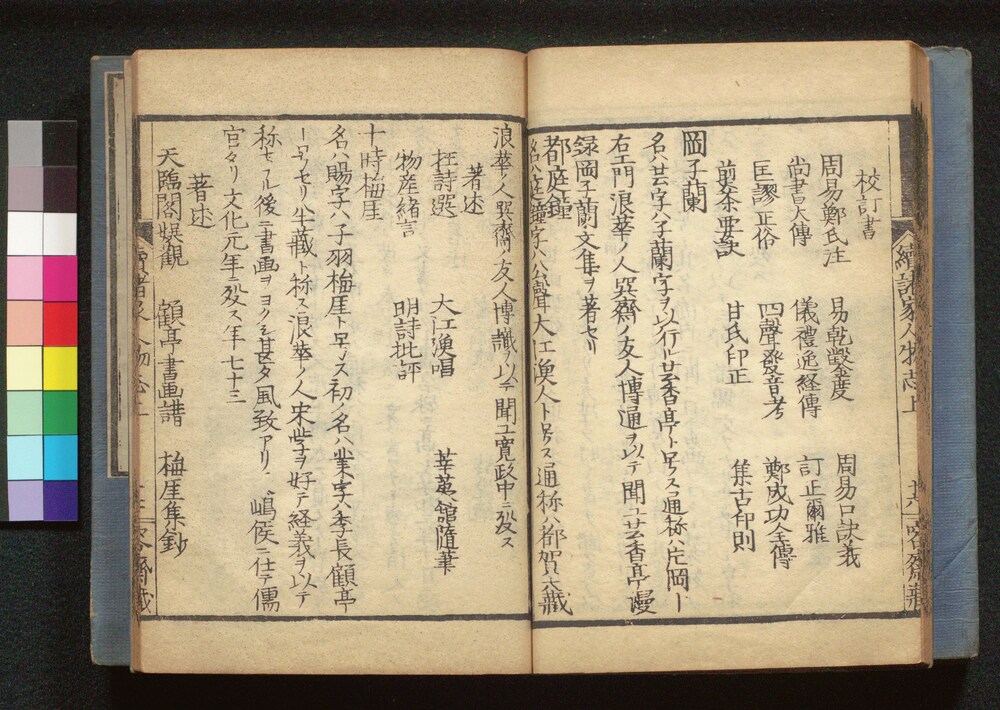 校訂書
周易鄭氏注　易乾鑿度　周易口訣義
尚書大傳　儀禮逸経傳　訂正爾雅
匡謬正俗　四聲發音考　鄭成功全傳
煎茶要訣　甘氏印正　集古印則
岡子蘭
名ハ芸字ハ子蘭字ヲ以行ル芸香亭ト号ス通称ハ片岡
右エ門浪華ノ人巽齋ノ友人博通ヲ以テ聞ユ芸香亭謾
録岡子蘭文集ヲ著セリ
都庭鐘
名ハ庭鐘字ハ公聲大江漁人ト号ス通称ハ都賀六藏
浪華ノ人巽齋ノ友人博識ヲ以テ聞ユ寛政中ニ殁ス
著述
狂詩選　大江漁唱　莘莬館随筆
物産緒言　明詩批評
十時梅厓
名ハ賜字ハ子羽梅厓ト号ス初ノ名ハ業字ハ季長顧亭
ト号セリ半藏ト称ス浪華ノ人宋学ヲ好テ経義ヲ以テ
称セラル後ニ書画ヲヨクシ甚タ風致アリ嶋侯ニ仕テ儒
官タリ文化元年殁ス年七十三
著述
天臨閣娯観　顧亭書画譜　梅厓集鈔
續諸家人物志上